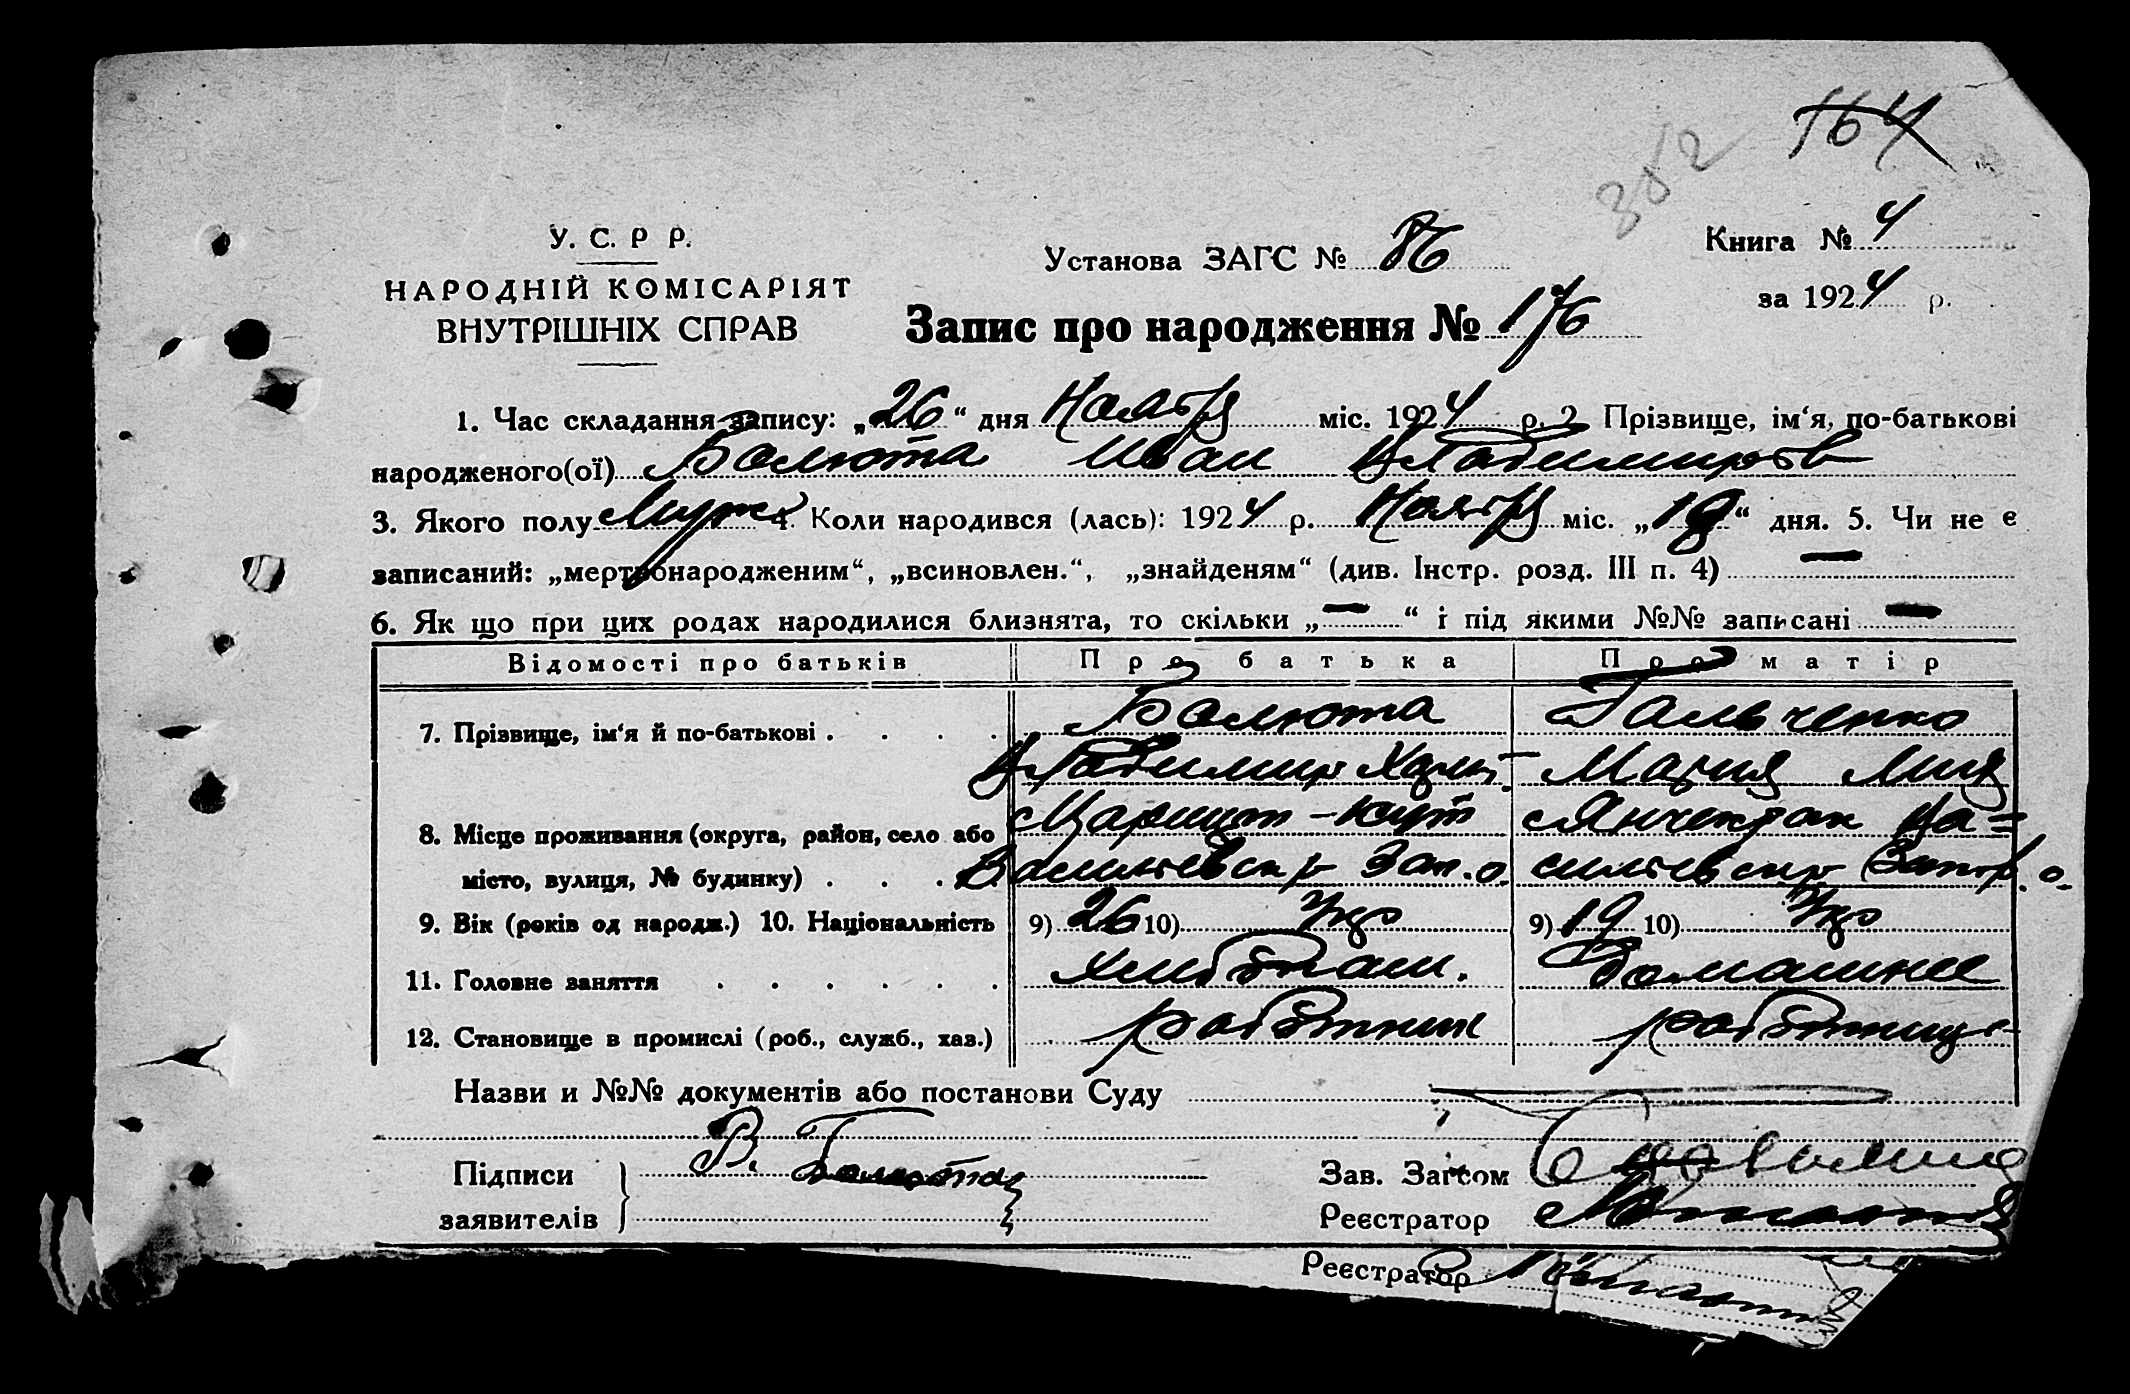 164
382
У. С. Р Р.
НАРОДНІЙ КОМІСАРІЯТ
ВНУТРІШНІХ СПРАВ
Установа ЗАГС № 86
Книга № 4
за 1924 р.
Запис про народження № 176
1. Час складання запису: „26“ дня Ноября міс. 1924 р. 2. Прізвище, ім‘я, по-батькові
народженого(ої) Балюта Иван Владимиров
3. Якого полу Муж 4. Коли народився (лась): 1924 р. Ноября міс. „19“ дня. 5. Чи не є
записаний: „мертвонародженим“, „всиновлен.“, „знайденям“ (див. Інстр. розд. III п. 4) —
6. Як що при цих родах народилися близнята, то скільки „—“ і під якими №№ записані —
Відомості про батьків Про батька Про матір
7. Прізвище, ім‘я й по-батькові Балюта Гальченко
Владимир Мария
8. Місце проживання (округа, район, село або с Царицын-Кут с Янчекрак Ва=
місто, вулиця, № будинку) Васильевск р Зап. о. сильевск р Запор. о.
9. Вік (років од народж.) 10. Національність 9) 26 10) Укр 9) 19 10) Укр
11. Головне заняття Хлебопаш. Домашнее
12. Становище в промислі (роб., служб., хаз.) работник работница
Назви и №№ документів або постанови Суду
Підписи В. Балюта Зав. Загсом
заявителів Реєстратор
Реєстратор